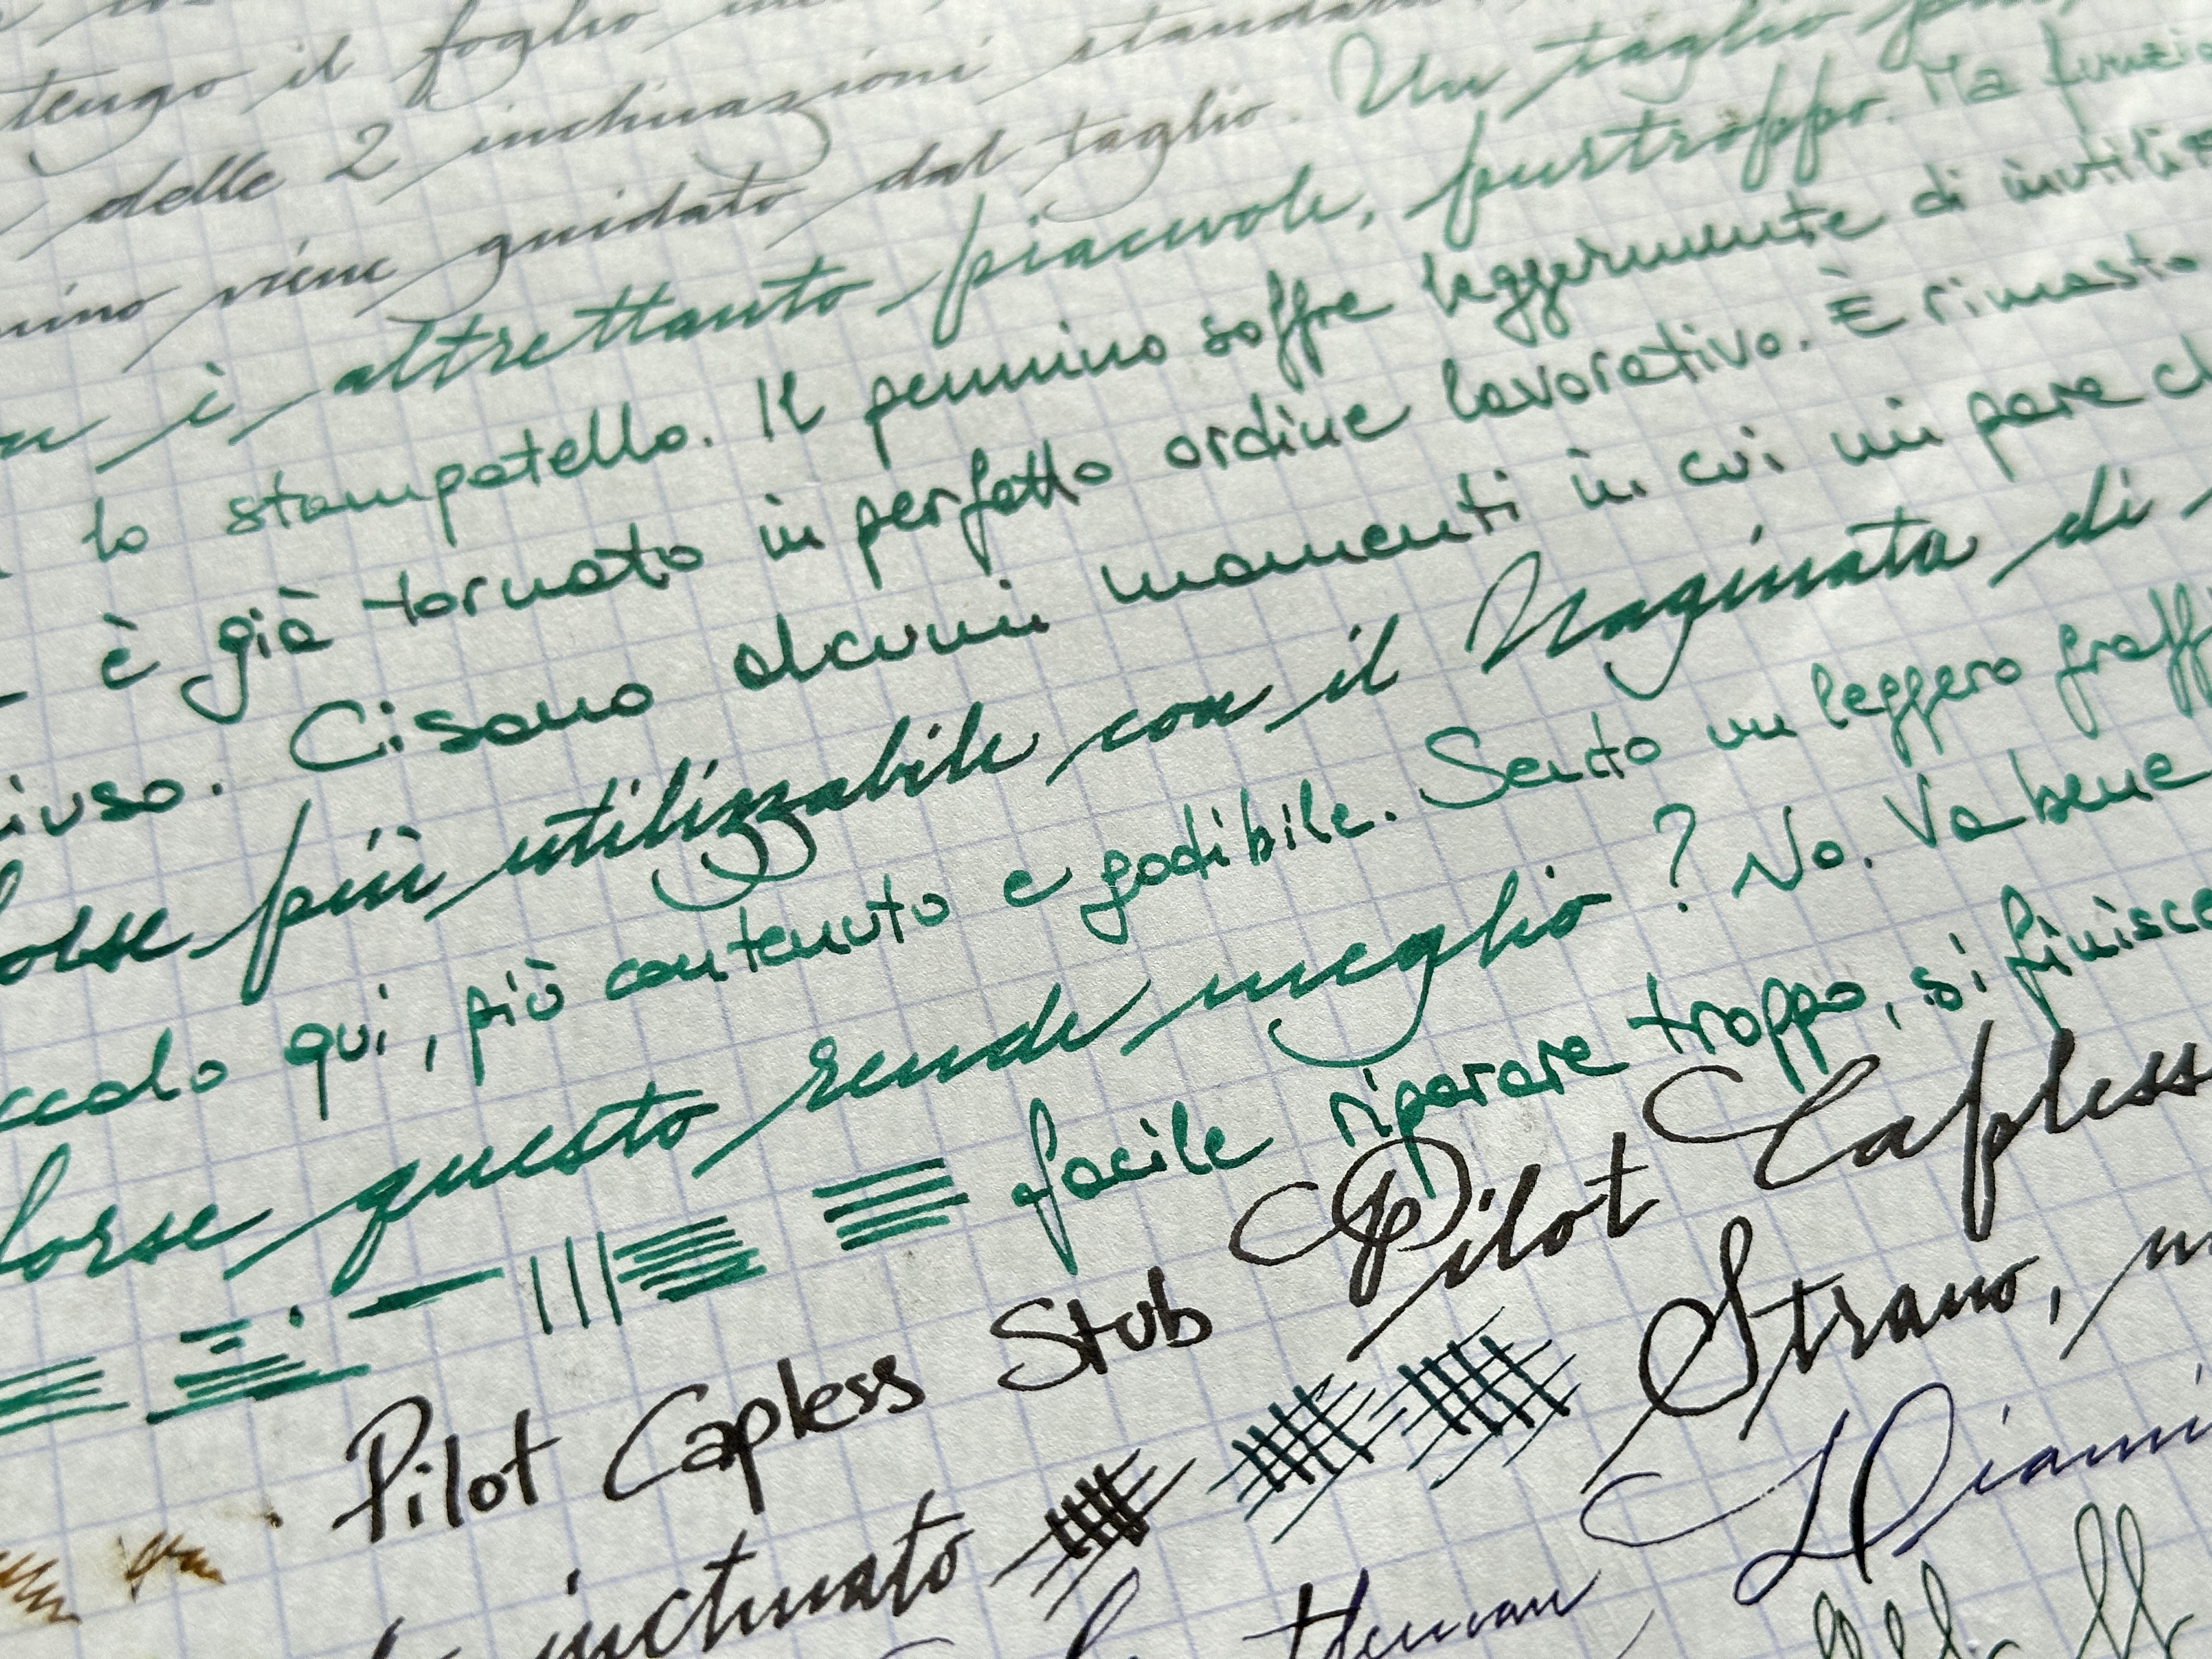 tengo il foglio
delle 2 inclinazioni standard
viene guidato dal taglio. Un taglio
è altrettanto piacevole, purtroppo. Ma funzio
lo stampatello. Il pennino soffre leggermente di inutili
è già tornato in perfetto ordine lavorativo. È rimasto
iuso. Ci sono alcuni momenti in cui mi pare ch
forse più utilizzabile con il Naginata di
qui, più contenuto e godibile. Sento un leggero graff
forse questo rende meglio? No. Va bene
facile riparare troppo, si finisce
Pilot Capless Stub Pilot Capless
inctunato Strano,